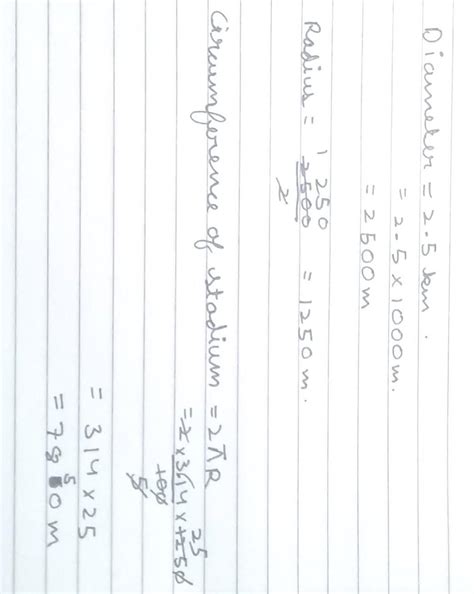 Diameter = 2.5 km.
= 2.5 x 1000 m.
= 2500 m
Radius = 1 250
2500 = 1250 m.
2
Circumference of stadium = 2πR
25
= 2 x 314 x 1250
100
5
= 314 x 25
= 7850 m